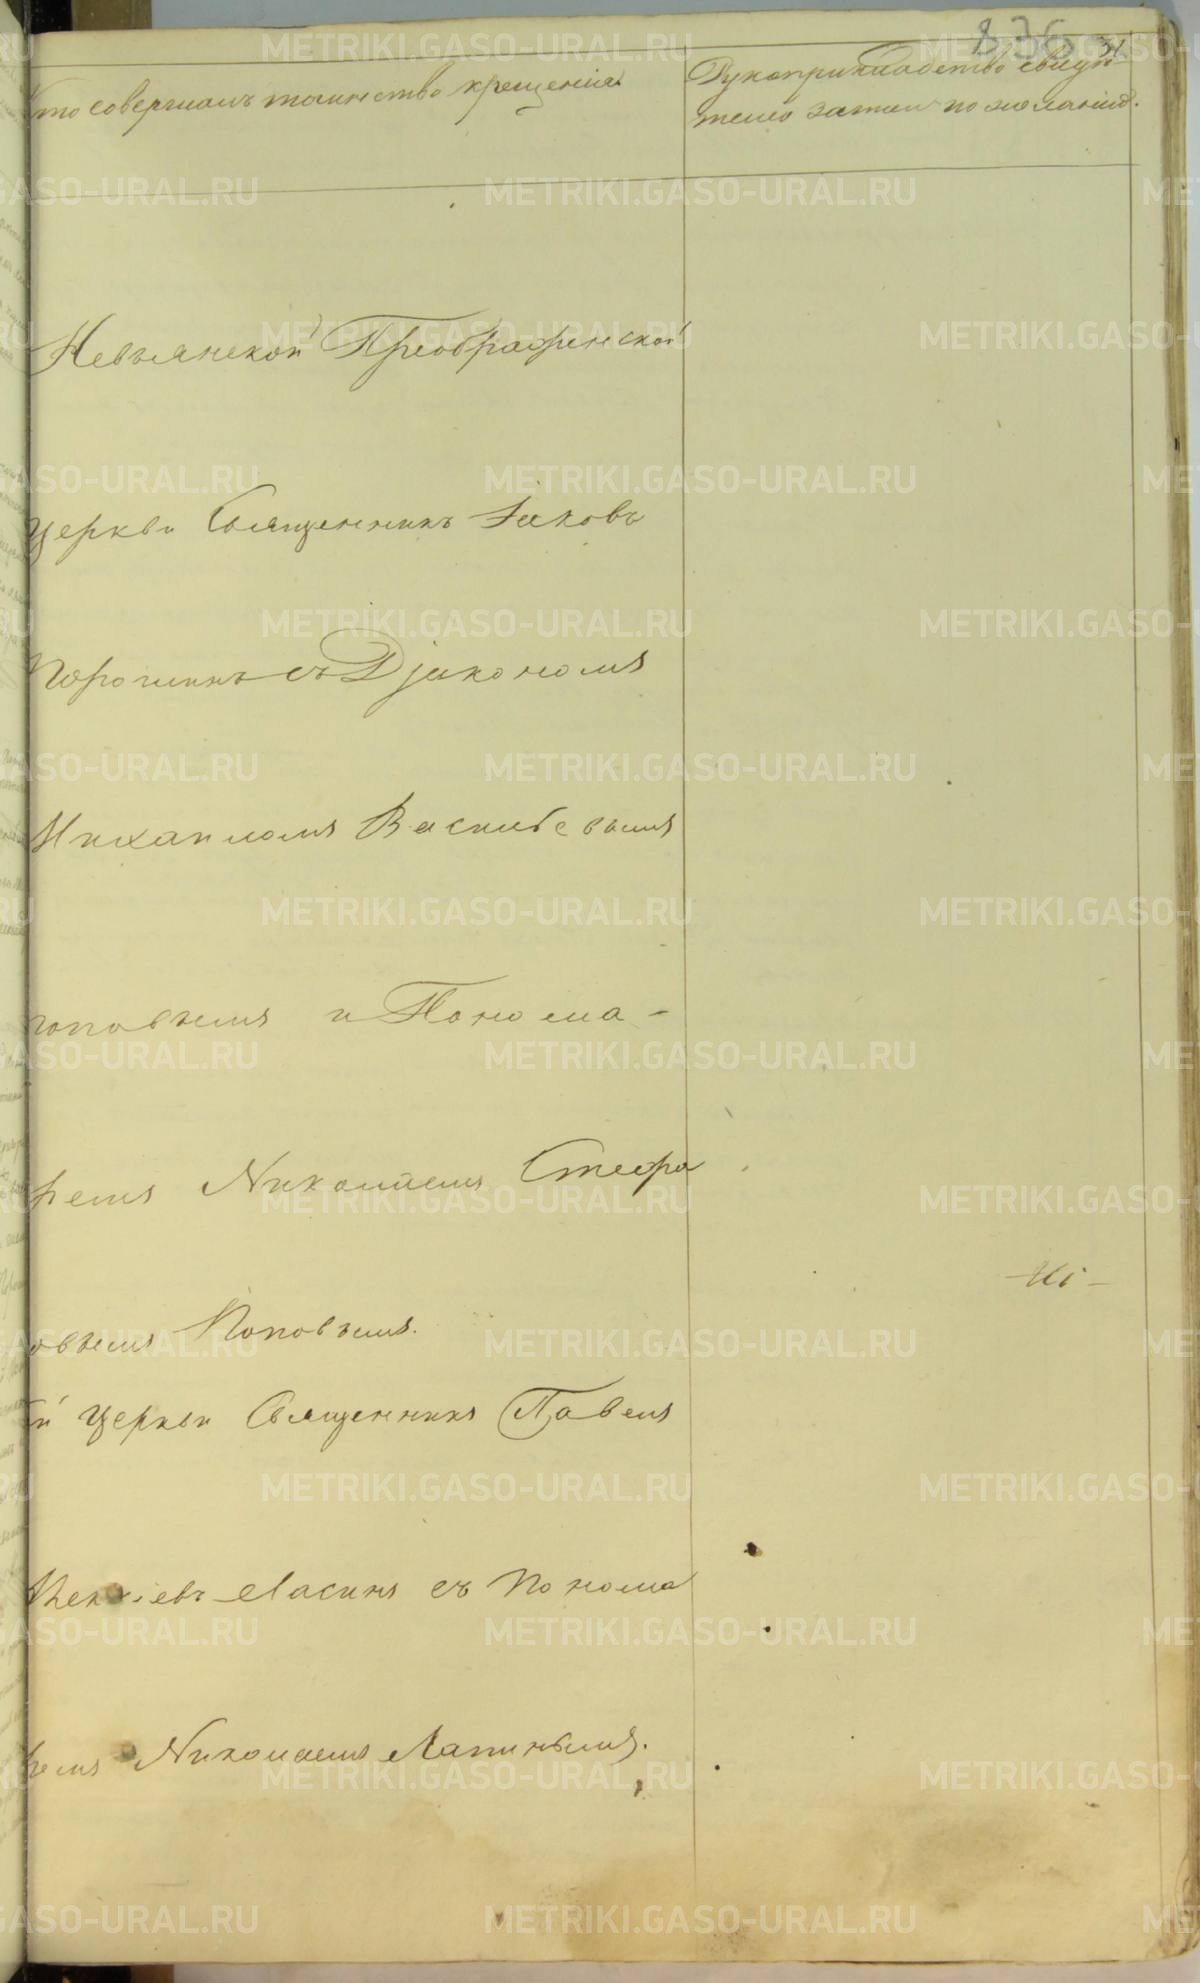 836
Кто совершалъ таинство крещенія
Рукоприкладство свидѣ
телей записи по желанію.
Невьянской Преображенской
церкви Священникъ Іаковъ
съ Діакономъ
Михаиломъ Васильевымъ
Поповымъ и Понома-
ремъ Николаемъ Стефа
новымъ Поповымъ.
й церкви Священникъ Павелъ
съ Понома
ремъ Николаемъ Лапинымъ.
METRIKI.GASO-URAL.RU